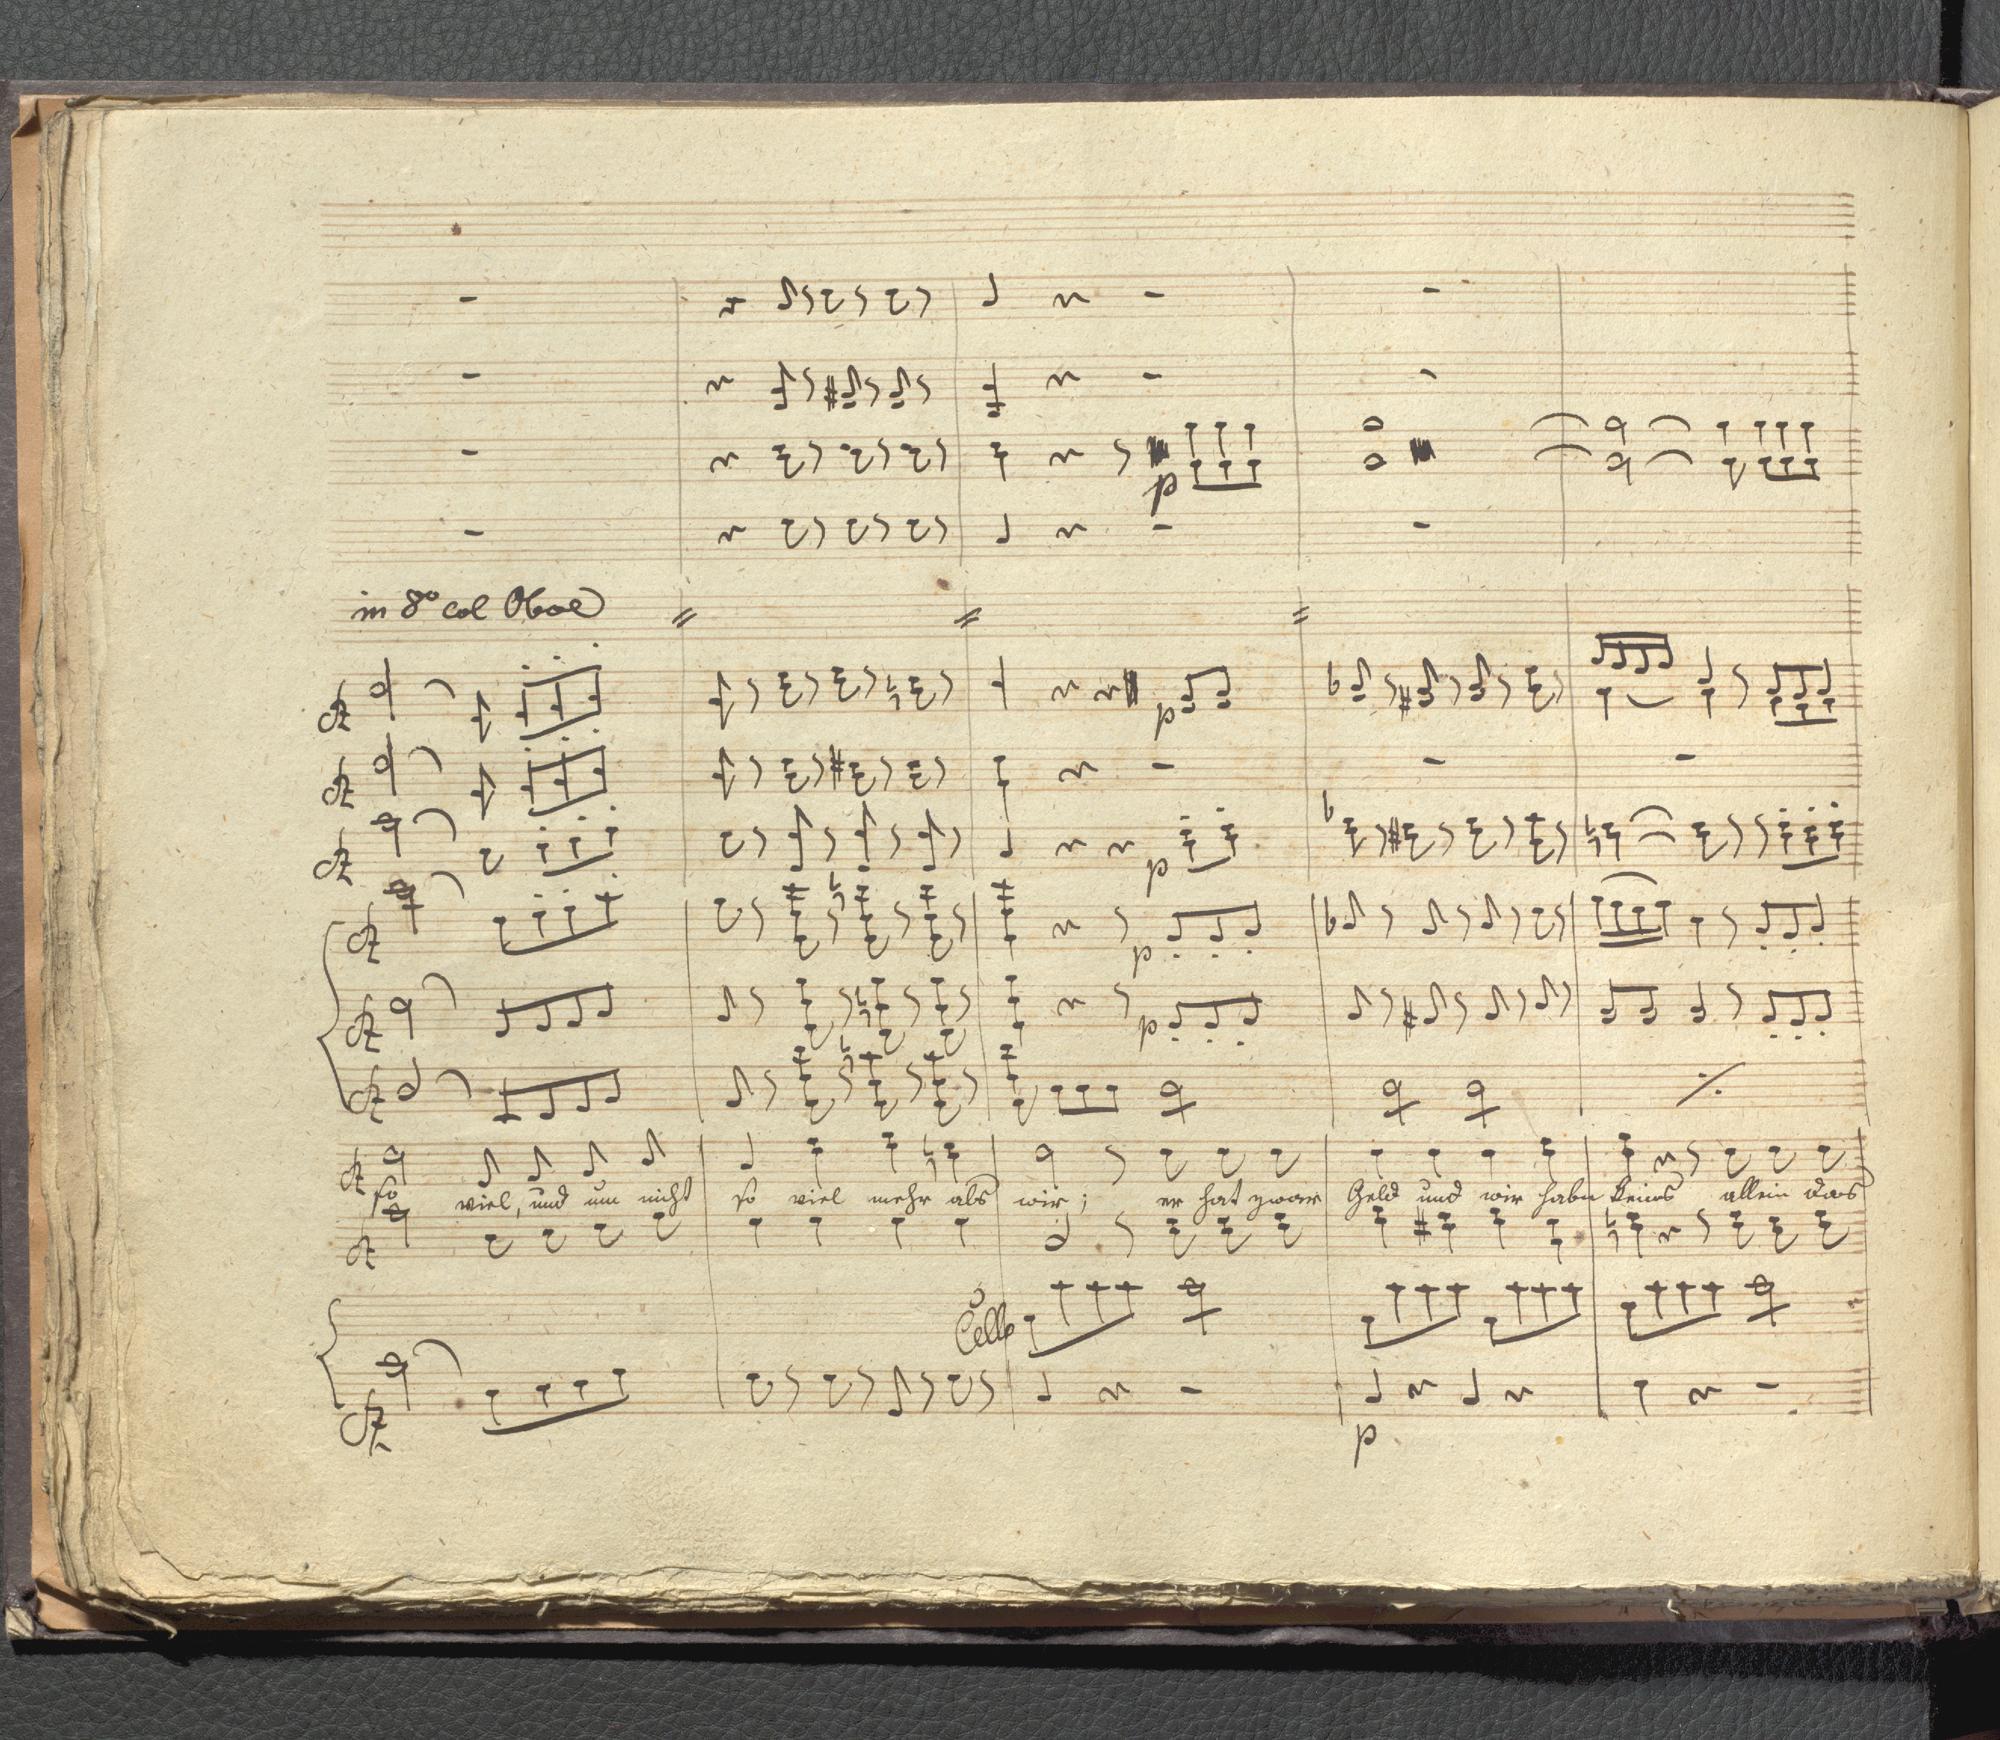 in 8º col Oboe
p
p
p
p
p
so viel, und um nicht so viel mehr als wir; er hat zwar Geld und wir habn keins allein das
Cello
p